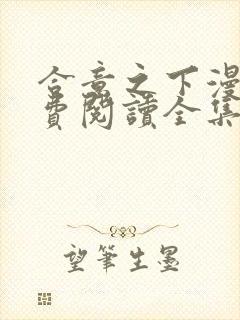 合意之下漫
費閱讀全集
望筆生墨